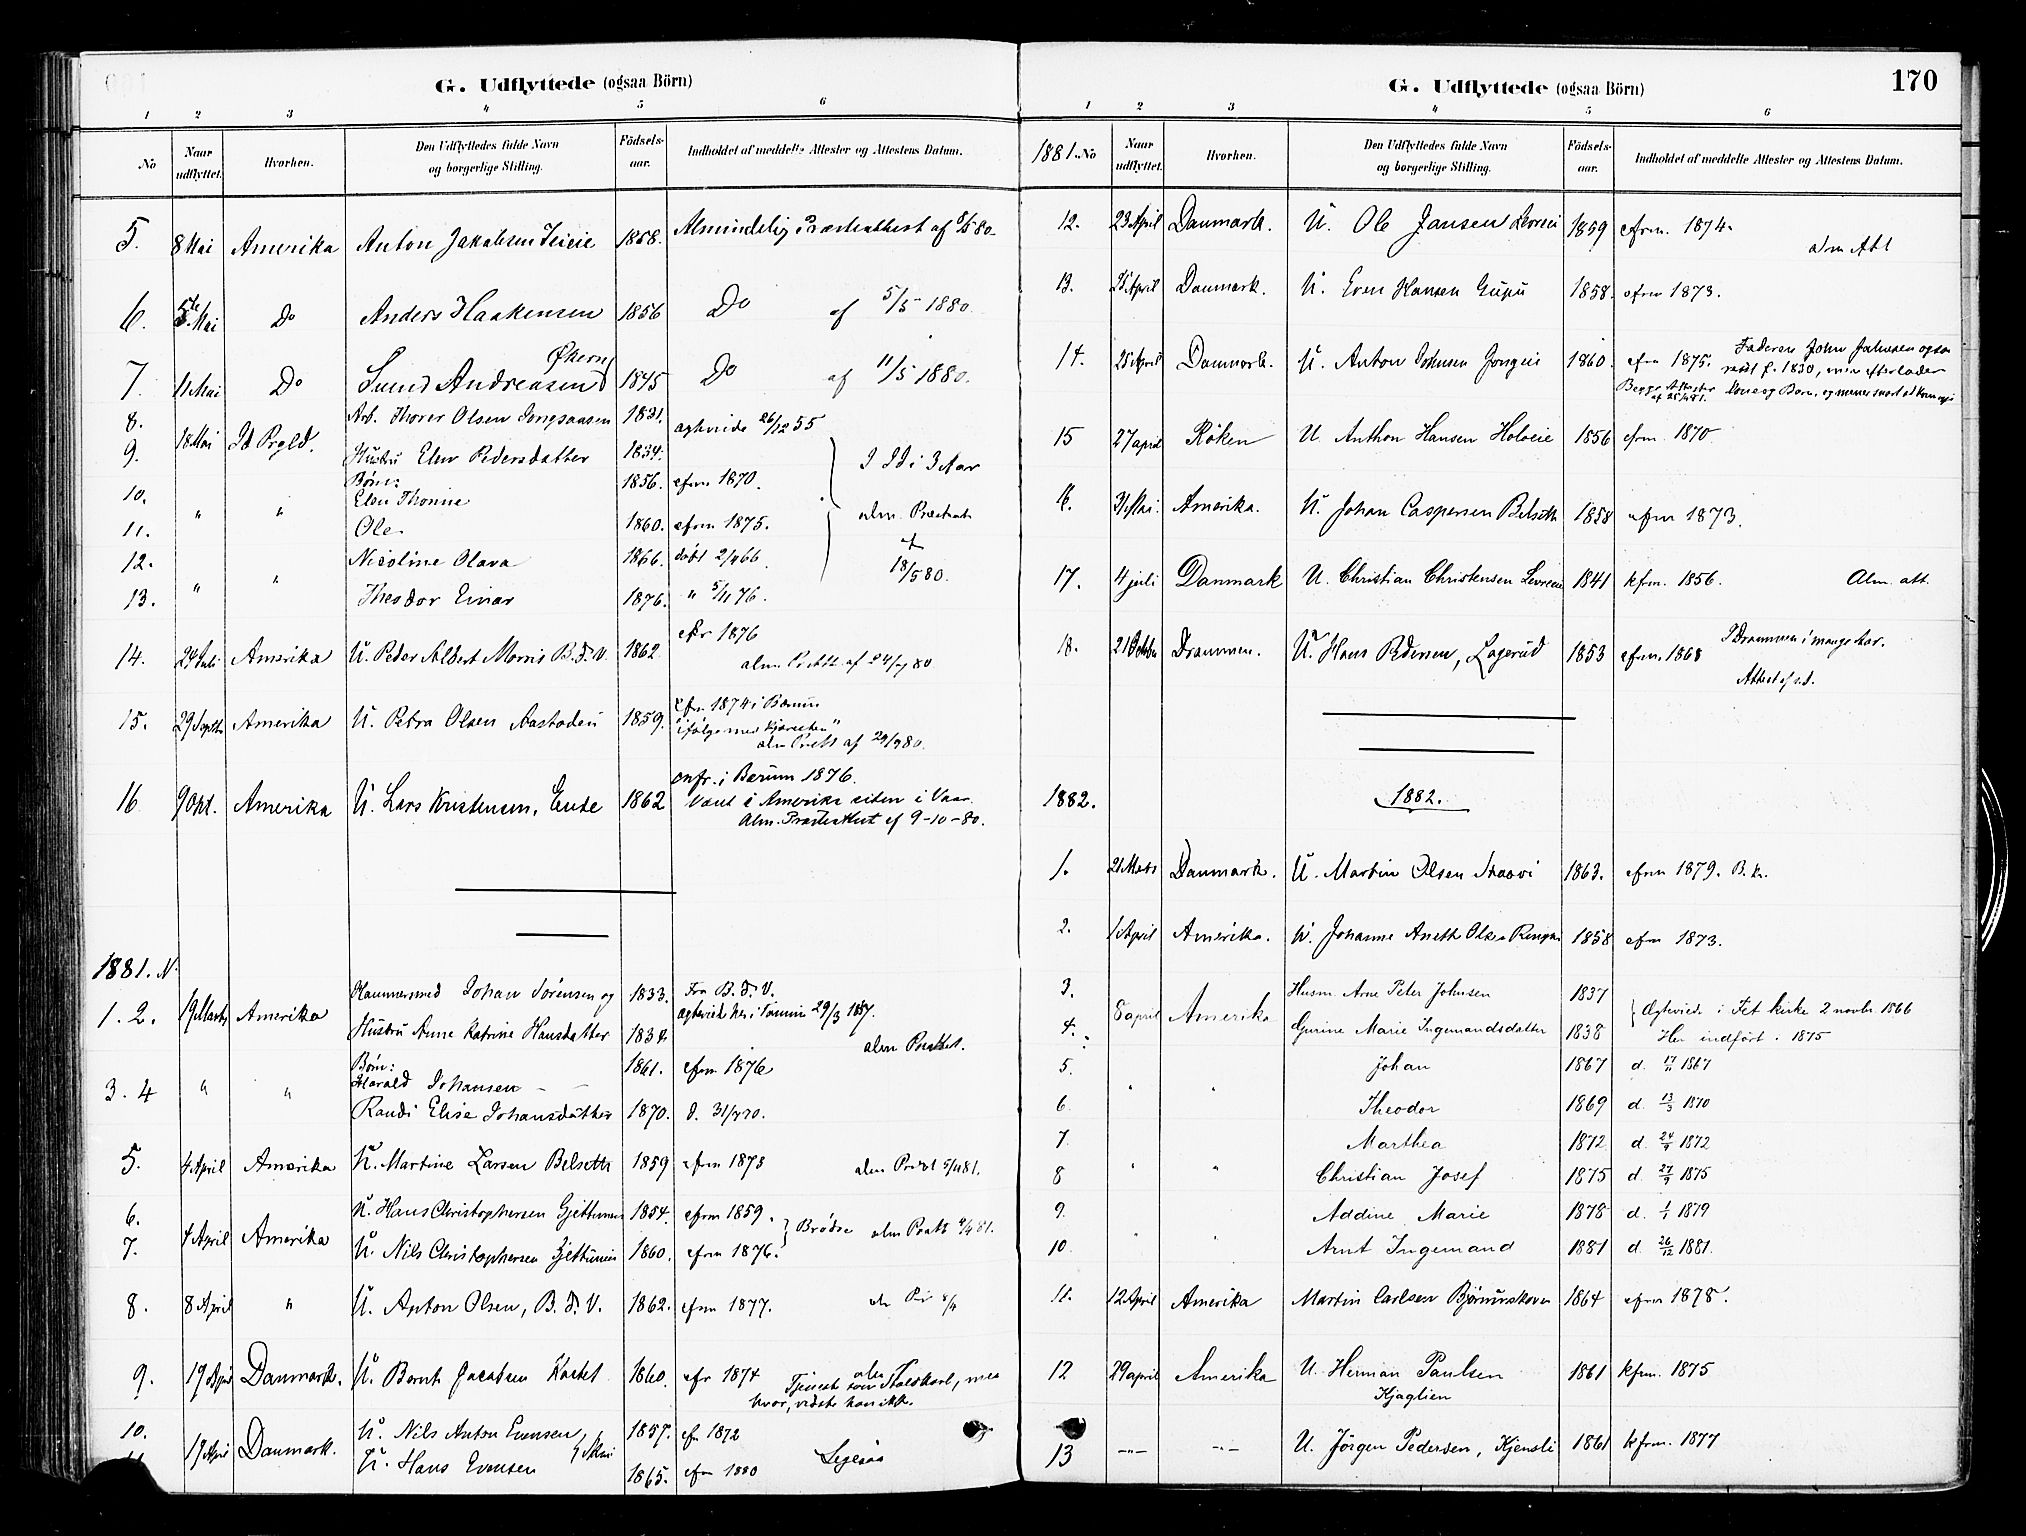 G. Udflyttede (ogsaa Börn)
1 2 3 4 5 6
No
Naar udflyttet.
Hvorhen.
Den Udflyttedes fulde Navn og borgerlige Stilling.
Födsels-aar.
Indholdet af meddelte Attester og Attestens Datum.
5. 8 Mai Amerika Anton Jakobsen 1858. Almindelig Præsteattest af 8/5 80
6. 5te Mai Do Anders Haakensen 1856 Do af 5/5 1880.
Økern
7. 11 Mai Do Svend Andreasen 1845 Do af 11/5 1880.
8. Arb. Thorer Olsen 1831. ægteviede 26/12 55
18 Mai Id Prgld.
9. Hustru Elen Pedersdatter 1834. I Id i 3 Aar
Börn:
10. " " Elen Thonine 1856. cfrm 1870.
11. Ole 1860. cfrm 1875. alm. Præsteatt
12. Nicoline Olava 1866. döbt 2/4 66 af 18/5 80.
13. " " Theodor Einar 1876. " 5/11 76.
14. 24 Juli Amerika U. Peder Albert Morris B. d. V. 1862 cfr 1876
alm Pr Att. af 24/7 80
15. 29 Septbr Amerika U. Petra Olsen 1859. cfr. 1874 i Bærum
"ifölge med
alm Pratt af 29/9 80.
16 9 Okt. Amerika U. Lars Kristensen, Ende 1862 confr. i Bærum 1876.
Været i Amerika siden i Vaar.
Alm. Præsteattest af 9-10-80.
1881. N.
1. 2. 19 Marts Amerika Hammersmed Johan Sörensen og 1833. Fra B. d. V.
ægteviede her i Tanum 29/3 1857.
Hustru Anne Katrine Hansdatter 1834. alm Prattest.
Börn:
3. 4 " " Harald Johansen 1861. cfrm 1876
Randi Elise Johansdatter 1870. d. 31/7 70.
5. 4 April Amerika U. Martine Larsen Belseth 1859 cfrm 1873 alm Pratt 5/4 81.
6. U. Hans Christophersen Gjettumeie 1854. cfrm 1859.
4 April Amerika Brödre alm Pratt 4/4 81.
7. U. Nils Christophersen Gjettumeie 1860. cfrm 1876.
8. 8 April " U. Anton Olsen, B. d. V. 1862. cfrm 1877. 8/4
9. 19 April Danmark. U. Bernt Jacobsen 1860. cfr 1874 Tjenest som Stalskarl, men
hvor, vidste han ikke.
10. U. Nils Anton Evensen, 1857. cfr 1872
19 April Danmark.
U. Hans Evensen 1865. cfrm 1880
G. Udflyttede (ogsaa Börn) 170
1 2 3 4 5 6
1881. No
Naar udflyttet.
Hvorhen.
Den Udflyttedes fulde Navn og borgerlige Stilling.
Födsels-aar.
Indholdet af meddelte Attester og Attestens Datum.
12. 23 April Danmark. U. Ole Jansen Levreie 1859 cfrm. 1874. alm Att
13. 25 April Danmark. U. Even Hansen 1858. cfrm 1873.
14. 25 April Danmark. U. Anton Johnsen 1860. cfrm 1875. Faderen John Johnsen ogsaa
reist f. 1830, min efterlader
Begge Attester af 25/4 81. Kone og Börn, og mener snart at komme igjen
15 27 april Röken U. Anthon Hansen Holoeie 1856 cfrm. 1870.
16. 31 Mai. Amerika. U. Johan Caspersen Belseth 1858 cfrm 1873.
17. 4 juli Danmark U. Christian Christensen Levreeie 1841 kfrm. 1856. Alm. att.
18. 21 Octobr Drammen. U. Hans Pedersen, Lagerud 1853 cfrm. 1868 I Drammen i mange Aar.
Attest af s.d.
1882. 1882.
1. 21 Marts Danmark. U. Martin Olsen 1863. cfrm 1879. B. k.
2. 1 April Amerika. U. Johanne Aneth Olsen 1858 cfrm 1873.
3. Husm. Arne Peter Johnsen 1837
8 april Amerika Ægteviede i Fet kirke 2 novbr 1866
4. Gurine Marie Ingemandsdatter 1838 Her indfört i 1875
5. Johan 1867 d. 17/11 1867
6. " " Theodor 1869 d. 13/3 1870
7. Marthea 1872 d. 24/9 1872
8 " " Christian Josef 1875 d. 27/9 1875
9. Addine Marie 1878 d. 1/1 1879
10. " " Arnt Ingemand 1881 d. 26/12 1881.
11. 12 April Amerika Martin Carlsen Björumskoven 1864 cfrm 1878.
12 29 april Amerika U. Herman Paulsen 1861 kfrm. 1875
Kjaglien
13 -"- -"- U. Jörgen Pedersen, Kjensli 1861 kfrm. 1877